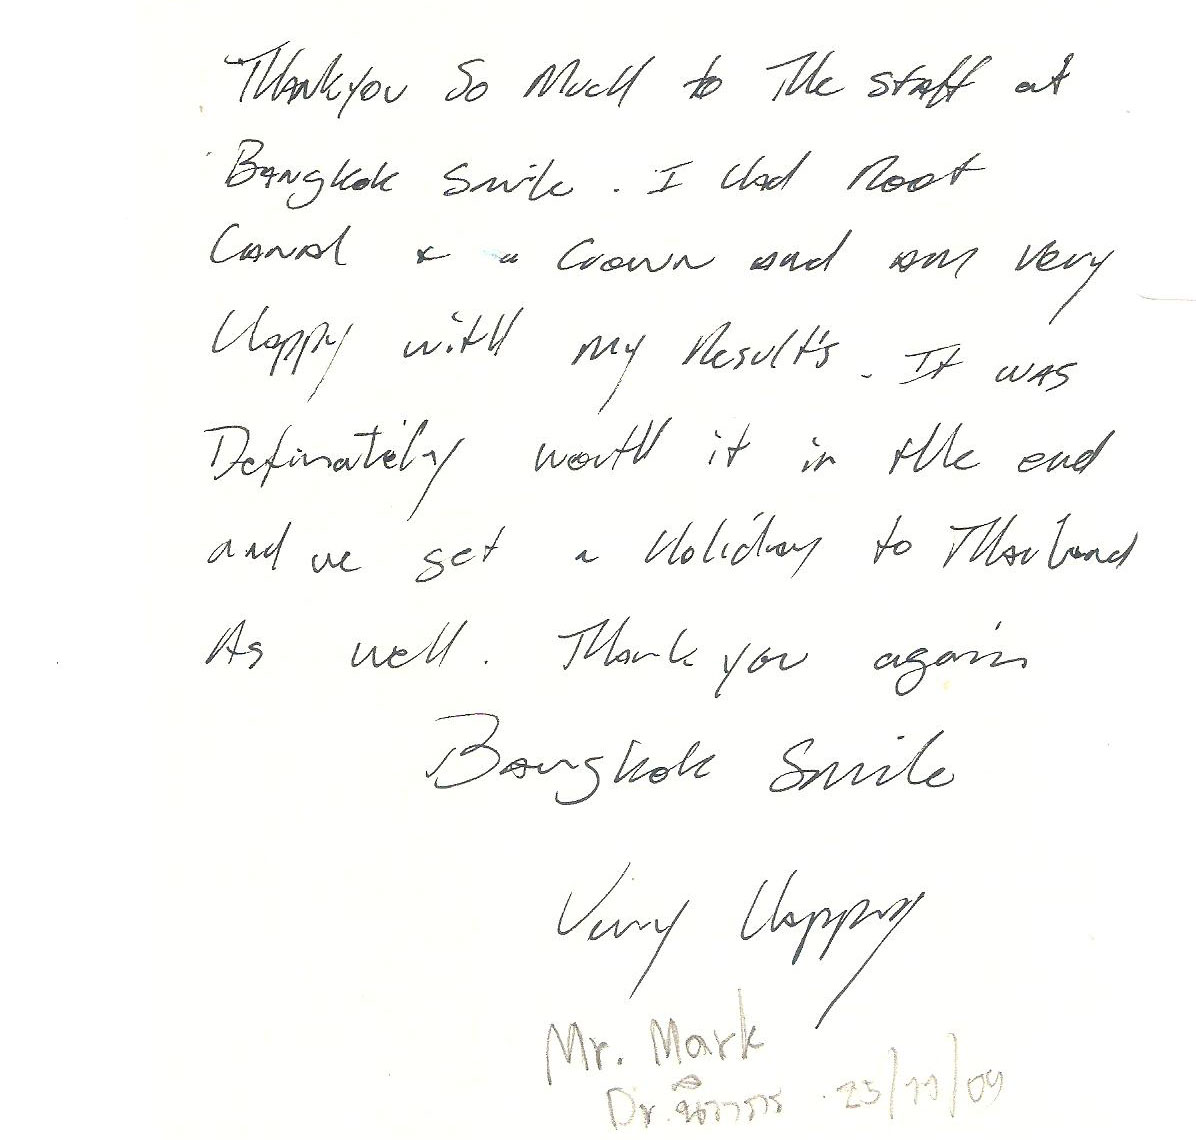 Thankyou So Much to The staff at
Bangkok Smile. I Had Root
Canal & a Crown and am very
Happy with my Result's. It was
Definately worth it in the end
and we get a Holiday to Thailand
As well. Thank you again
Bangkok Smile
Very Happy
Mr. Mark
Dr. 25/11/09